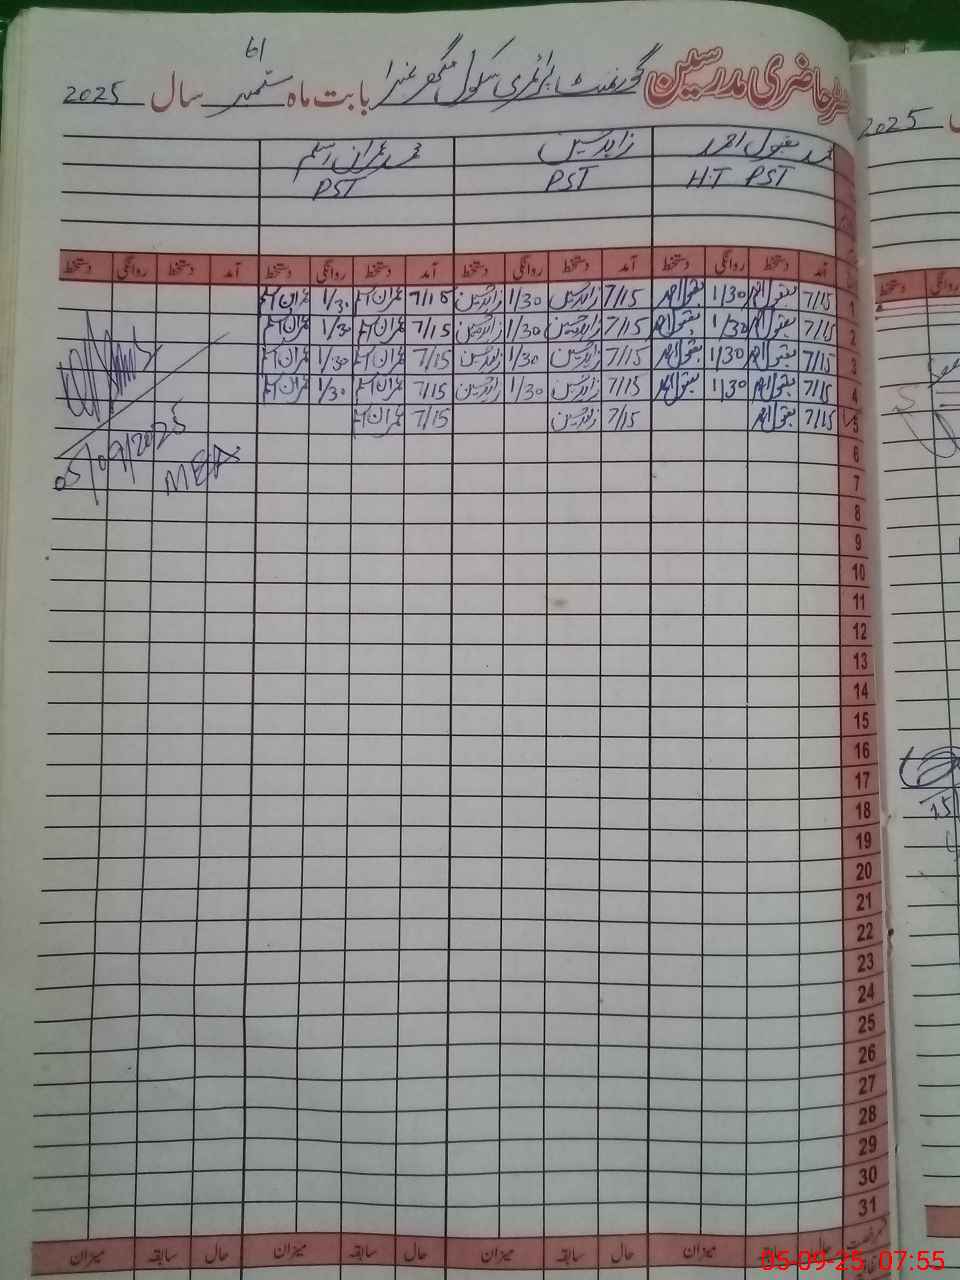 61
رجسٹر حاضری مدرسین گورنمنٹ پرائمری سکول بابت ماہ ستمبر سال 2025
محمد مقبول احمد زاہد حسین محمد عمران اسلم
H.T PST PST PST
آمد دستخط روانگی دستخط آمد دستخط روانگی دستخط آمد دستخط روانگی دستخط آمد دستخط روانگی دستخط
1 7/15 مقبول احمد 1/30 مقبول احمد 7/15 زاہد حسین 1/30 زاہد حسین 7/15 عمران اسلم 1/30 عمران اسلم
2 7/15 مقبول احمد 1/30 مقبول احمد 7/15 زاہد حسین 1/30 زاہد حسین 7/15 عمران اسلم 1/30 عمران اسلم
3 7/15 مقبول احمد 1/30 مقبول احمد 7/15 زاہد حسین 1/30 زاہد حسین 7/15 عمران اسلم 1/30 عمران اسلم
4 7/15 مقبول احمد 1/30 مقبول احمد 7/15 زاہد حسین 1/30 زاہد حسین 7/15 عمران اسلم 1/30 عمران اسلم
5 7/15 مقبول احمد 7/15 زاہد حسین 7/15 عمران اسلم
05/09/2025
MEA
6
7
8
9
10
11
12
13
14
15
16
17
18
19
20
21
22
23
24
25
26
27
28
29
30
31
حال سابقہ میزان حال سابقہ میزان حال سابقہ میزان حال سابقہ میزان
2025
دستخط روانگی
15
05-09-25 07:55